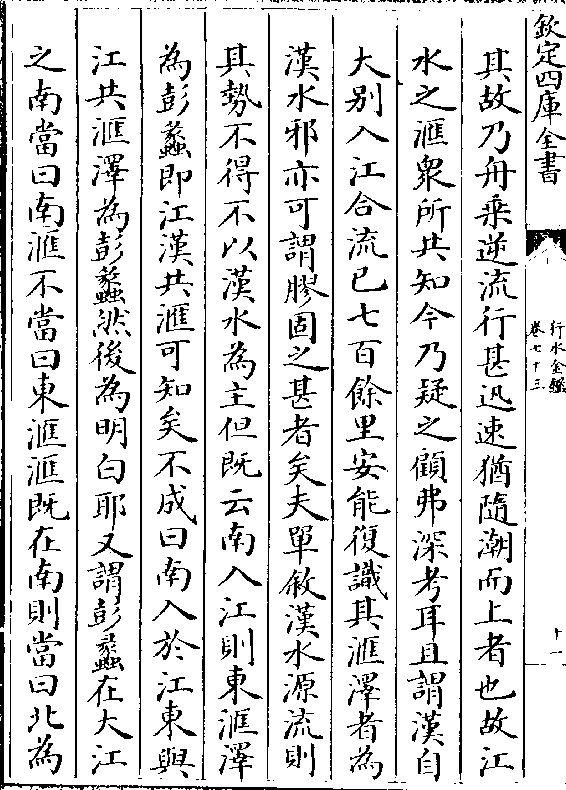 欽定四庫全書
行水金鑑
卷七十三
十一
其故乃舟乘逆流行甚迅速猶隨潮而上者也故江
水之滙衆所共知今乃疑之顧弗深考耳且謂漢自
大别入江合流已七百餘里安能復識其滙澤者為
漢水邪亦可謂膠固之甚者矣夫單敘漢水源流則
其勢不得不以漢水為主但既云南入江則東滙澤
為彭蠡即江漢共滙可知矣不成曰南入於江東與
江共滙澤為彭蠡然後為明白耶又謂彭蠡在大江
之南當曰南滙不當曰東滙滙既在南則當曰北為